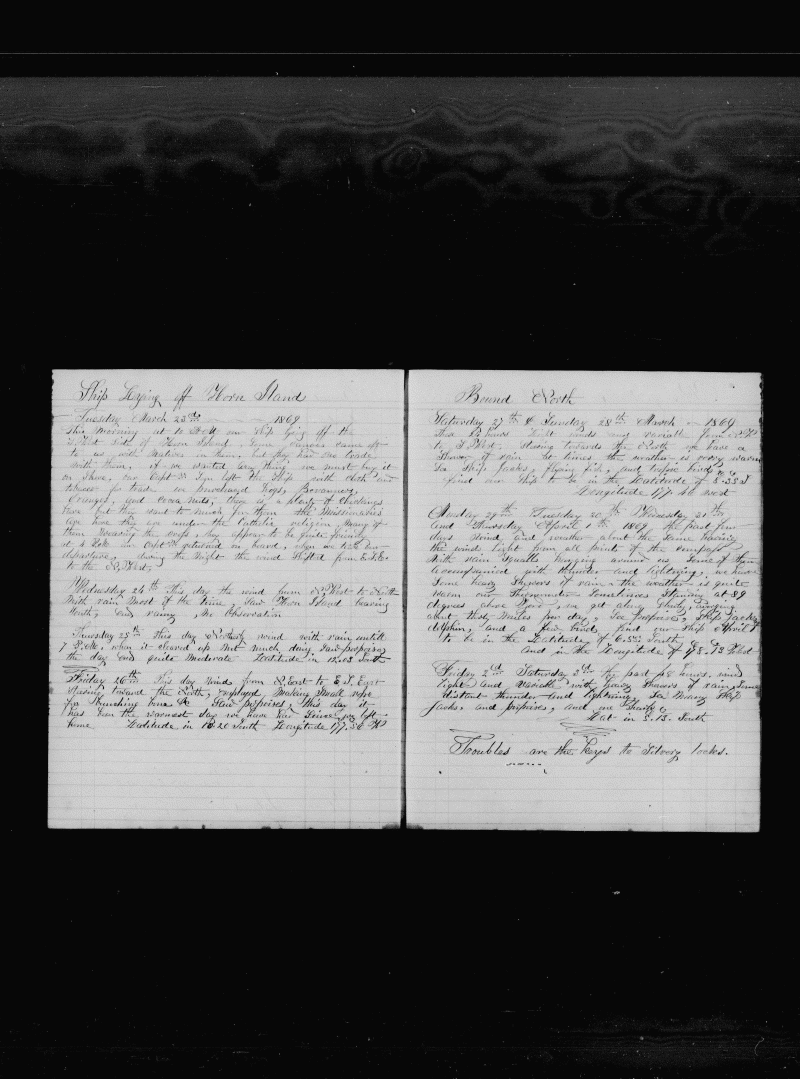 Ship Lying off Horn Island
Tuesday March 23rd 1869
This morning at 8 AM our ship lying off the
West side of Horn Island, some canoes came off
to us with Natives in them, but they had no trade
with them, if we wanted any thing we must buy it
on shore, our Capt & Sen left the ship with cloth and
tobacco for trade, we purchased Hogs, Bananas,
Oranges, and Cocoa nuts, there is a plenty of Chickings
here but they want to much for them the Missionaries
are here they are under the Catholic religion, Many of
them wearing the cross, they appear to be quite friendly
at 4 Oclk our Capt returned on board, when we took our
departure, during the Night the wind shifted from E.N.E.
to the N.West,
Wednesday 24th This day the wind from N.West to North
With rain most of the time, Saw Horn Island bearing
South, end rainy, No observation
Thursday 25th this day North wind with rain untill
7 Oclk, when it cleared up Not much doing Saw porpoises
the day ends quite Moderate Latitude in 12.03 South
Friday 26th This day Wind from N.East to E.S.East
Steering toward the North, employed Making Small rope
for Shinching tons &c Saw porpoises, this day it
has been the warmest day we have had Since we left
home Latitude in 10.20 South Longitude 177.50 W
Bound North
Saturday 27th & Sunday 28th March 1869
These 48 hours light winds and variable from N.W
to S.West, Steering towards the North we have a
Shower of rain at times the weather is very warm
See Ship Jacks, flying fish, and tropic birds
find our Ship to be in the Latitude of 8.33 S
Longitude 177.40 west
Monday 29th Tuesday 30th Wednesday 31st
And Thursday April 1st 1869 the past four
days Wind and weather about the Same having
the wind light from all points of the compass
With rain Squalls hanging around us Some of them
accompanied with thunder and lightning, we have
Some heavy Showers of rain, the weather is quite
warm our Thermometer Sometimes Standing at 89
degrees above Zero, we get along slowly, averaging
about thirty miles per day, See porpoises, Ship Jacks,
dolphin, and a few birds, find our Ship April 1st
to be in the Latitude of 6.53 South
and in the Longitude of 178.13 West
Friday 2d Saturday 3d the past 48 hours, wind
Light and Variable with heavy Showers of rain, Some
distant thunder and lightning, See Many Ship
Jacks, and porpoises, and one Shark,
Lat in 5.13 South
Troubles are the keyes to Silvery locks.